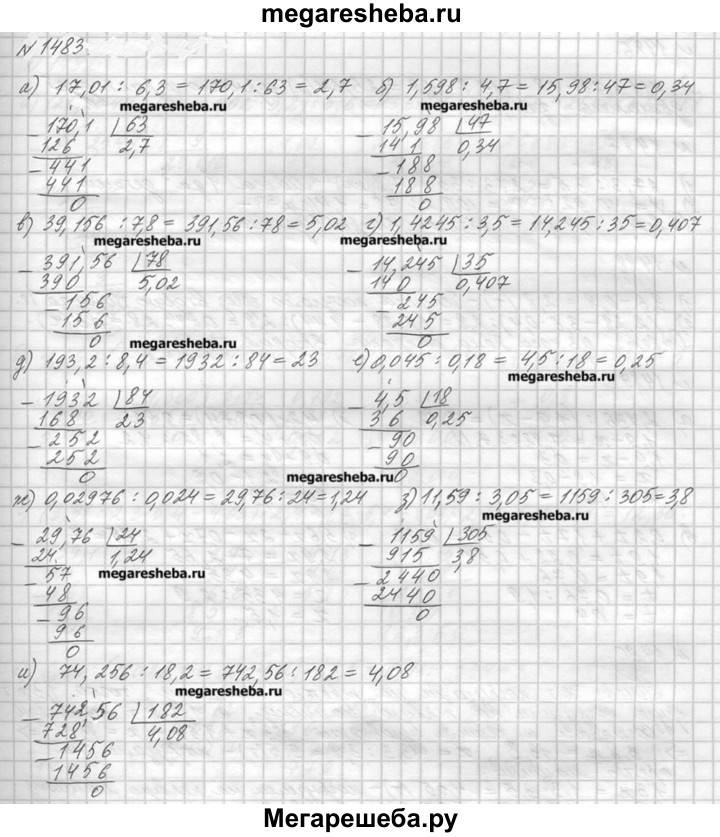 megaresheba.ru
№ 1483
а) 17,01 : 6,3 = 170,1 : 63 = 2,7
megaresheba.ru
170,1 | 63
126 2,7
441
441
0
б) 1,598 : 4,7 = 15,98 : 47 = 0,34
megaresheba.ru
15,98 | 47
141 0,34
188
188
0
в) 39,156 : 7,8 = 391,56 : 78 = 5,02
megaresheba.ru
391,56 | 78
390 5,02
156
156
0
г) 1,4245 : 3,5 = 14,245 : 35 = 0,407
megaresheba.ru
14,245 | 35
140 0,407
245
245
0
megaresheba.ru
д) 193,2 : 8,4 = 1932 : 84 = 23
1932 | 84
168 23
252
252
0
е) 0,045 : 0,18 = 4,5 : 18 = 0,25
megaresheba.ru
4,5 | 18
36 0,25
90
90
0
megaresheba.ru
ж) 0,02976 : 0,024 = 29,76 : 24 = 1,24
29,76 | 24
24 1,24
57
megaresheba.ru
48
96
96
0
з) 11,59 : 3,05 = 1159 : 305 = 3,8
megaresheba.ru
1159 | 305
915 3,8
2440
2440
0
и) 74,256 : 18,2 = 742,56 : 182 = 4,08
megaresheba.ru
742,56 | 182
728 4,08
1456
1456
0
Мегарешеба.ру